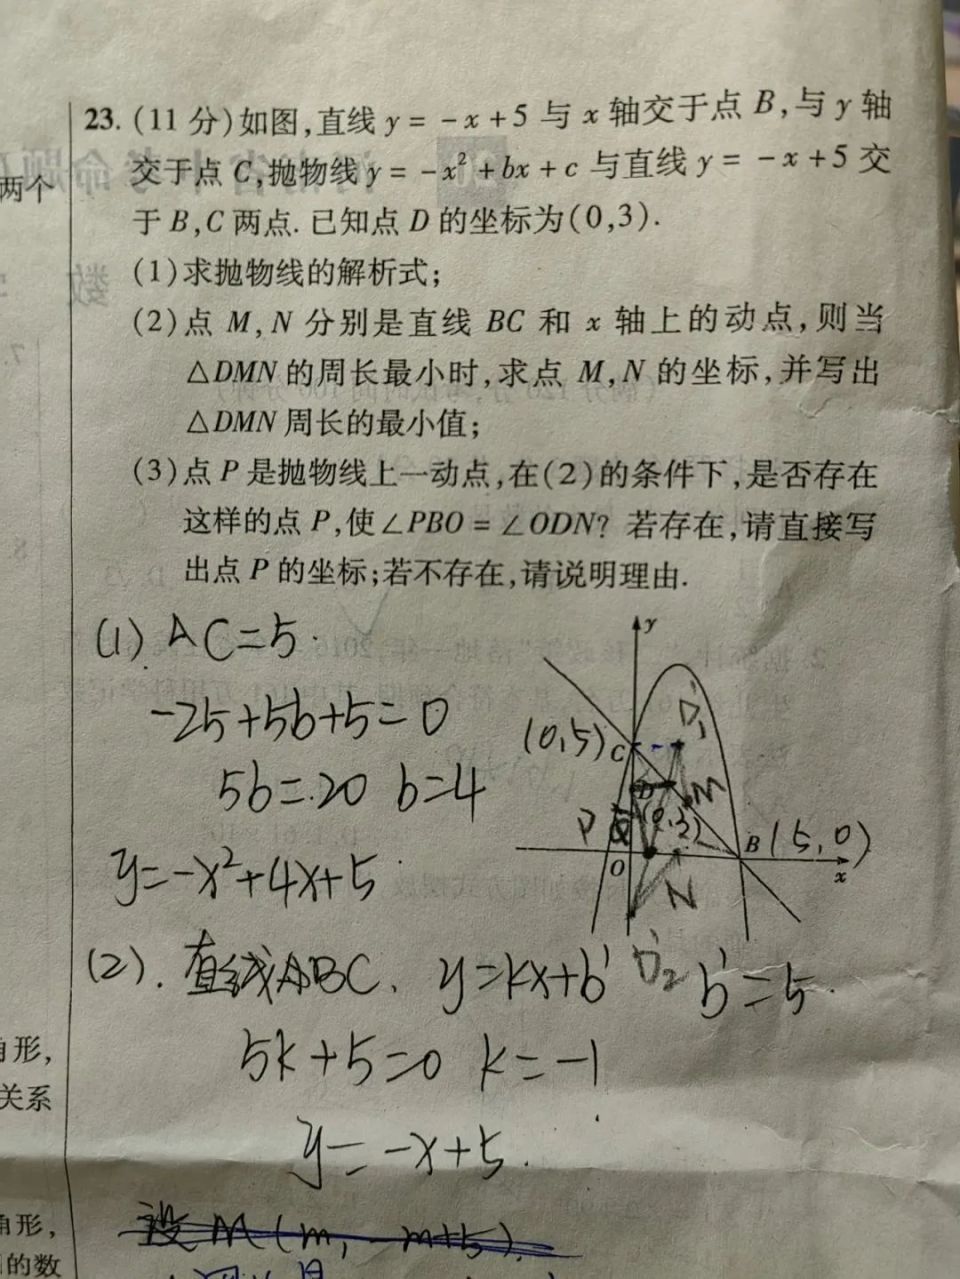 23. (11 分)如图,直线 y = -x+5 与 x 轴交于点 B,与 y 轴
交于点 C,抛物线 y = -x² + bx + c 与直线 y = -x+5 交
于 B,C 两点. 已知点 D 的坐标为(0,3).
(1)求抛物线的解析式;
(2)点 M,N 分别是直线 BC 和 x 轴上的动点,则当
△DMN 的周长最小时,求点 M,N 的坐标,并写出
△DMN 周长的最小值;
(3)点 P 是抛物线上一动点,在(2)的条件下,是否存在
这样的点 P,使∠PBO = ∠ODN? 若存在,请直接写
出点 P 的坐标;若不存在,请说明理由.
两个
角形,
关系
角形,
的数
(1) AC=5.
-25+5b+5=0
5b=20 b=4
y=-x²+4x+5
y
D₁
(0,5) C
M
(0,3)
B (5,0)
O
x
N
D₂
(2). 直线BC. y=kx+b' b'=5.
5k+5=0 k=-1
y=-x+5.
设 M(m, -m+5).